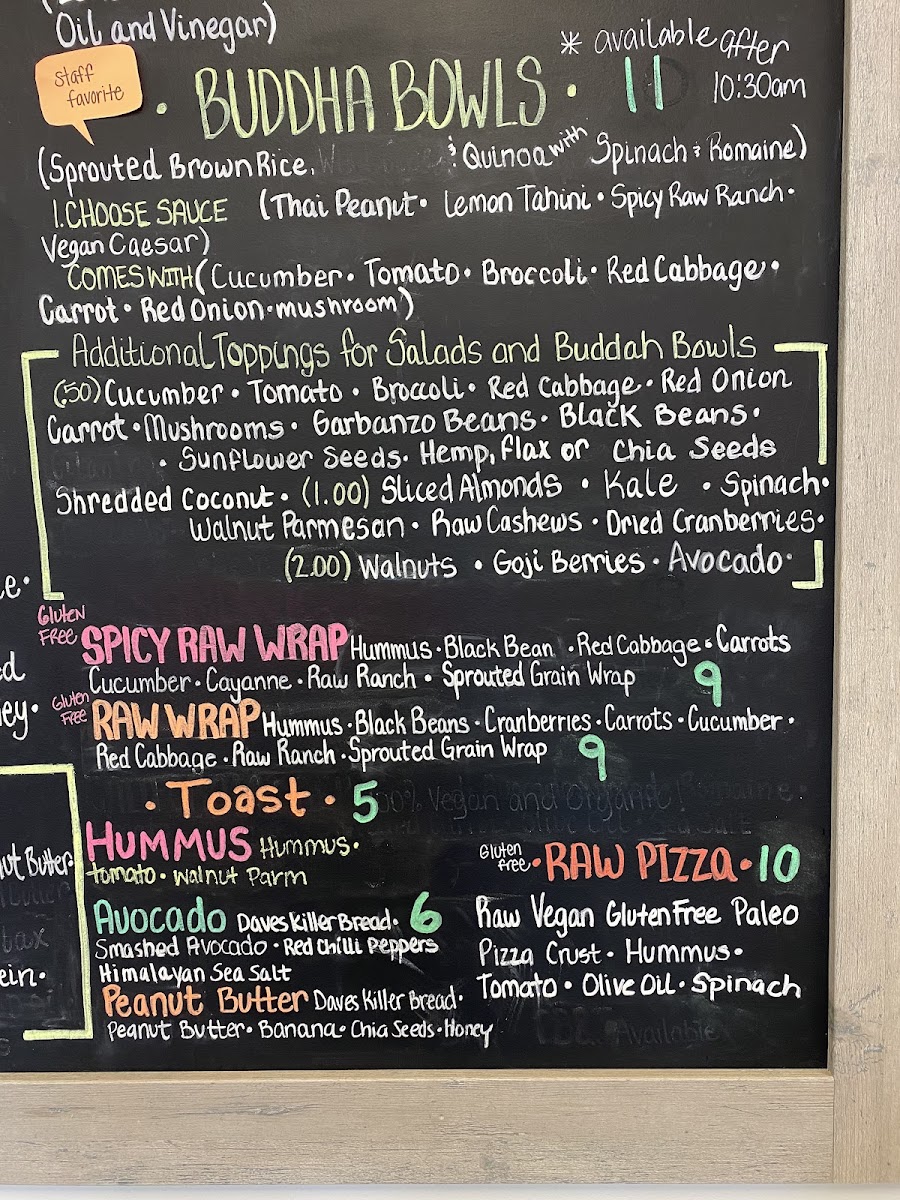 Oil and Vinegar)
Staff
favorite
* available after
10:30am
• BUDDHA BOWLS • 11
(Sprouted Brown Rice, & Quinoa with Spinach & Romaine)
1. CHOOSE SAUCE (Thai Peanut • Lemon Tahini • Spicy Raw Ranch •
Vegan Caesar)
COMES WITH (Cucumber • Tomato • Broccoli • Red Cabbage •
Carrot • Red Onion • mushroom)
Additional Toppings for Salads and Buddah Bowls
(.50) Cucumber • Tomato • Broccoli • Red Cabbage • Red Onion
Carrot • Mushrooms • Garbanzo Beans • Black Beans •
• Sunflower Seeds • Hemp, Flax or Chia Seeds
Shredded Coconut • (1.00) Sliced Almonds • Kale • Spinach •
Walnut Parmesan • Raw Cashews • Dried Cranberries •
(2.00) Walnuts • Goji Berries • Avocado •
Gluten
Free
SPICY RAW WRAP Hummus • Black Bean • Red Cabbage • Carrots
Cucumber • Cayanne • Raw Ranch • Sprouted Grain Wrap 9
Gluten
Free
RAW WRAP Hummus • Black Beans • Cranberries • Carrots • Cucumber •
Red Cabbage • Raw Ranch • Sprouted Grain Wrap 9
• Toast • 5
HUMMUS Hummus •
tomato • walnut Parm
Avocado Daves Killer Bread • 6
Smashed Avocado • Red Chilli Peppers
Himalayan Sea Salt
Peanut Butter Daves Killer Bread •
Peanut Butter • Banana • Chia Seeds • Honey
Gluten
free
• RAW PIZZA • 10
Raw Vegan Gluten Free Paleo
Pizza Crust • Hummus •
Tomato • Olive Oil • Spinach